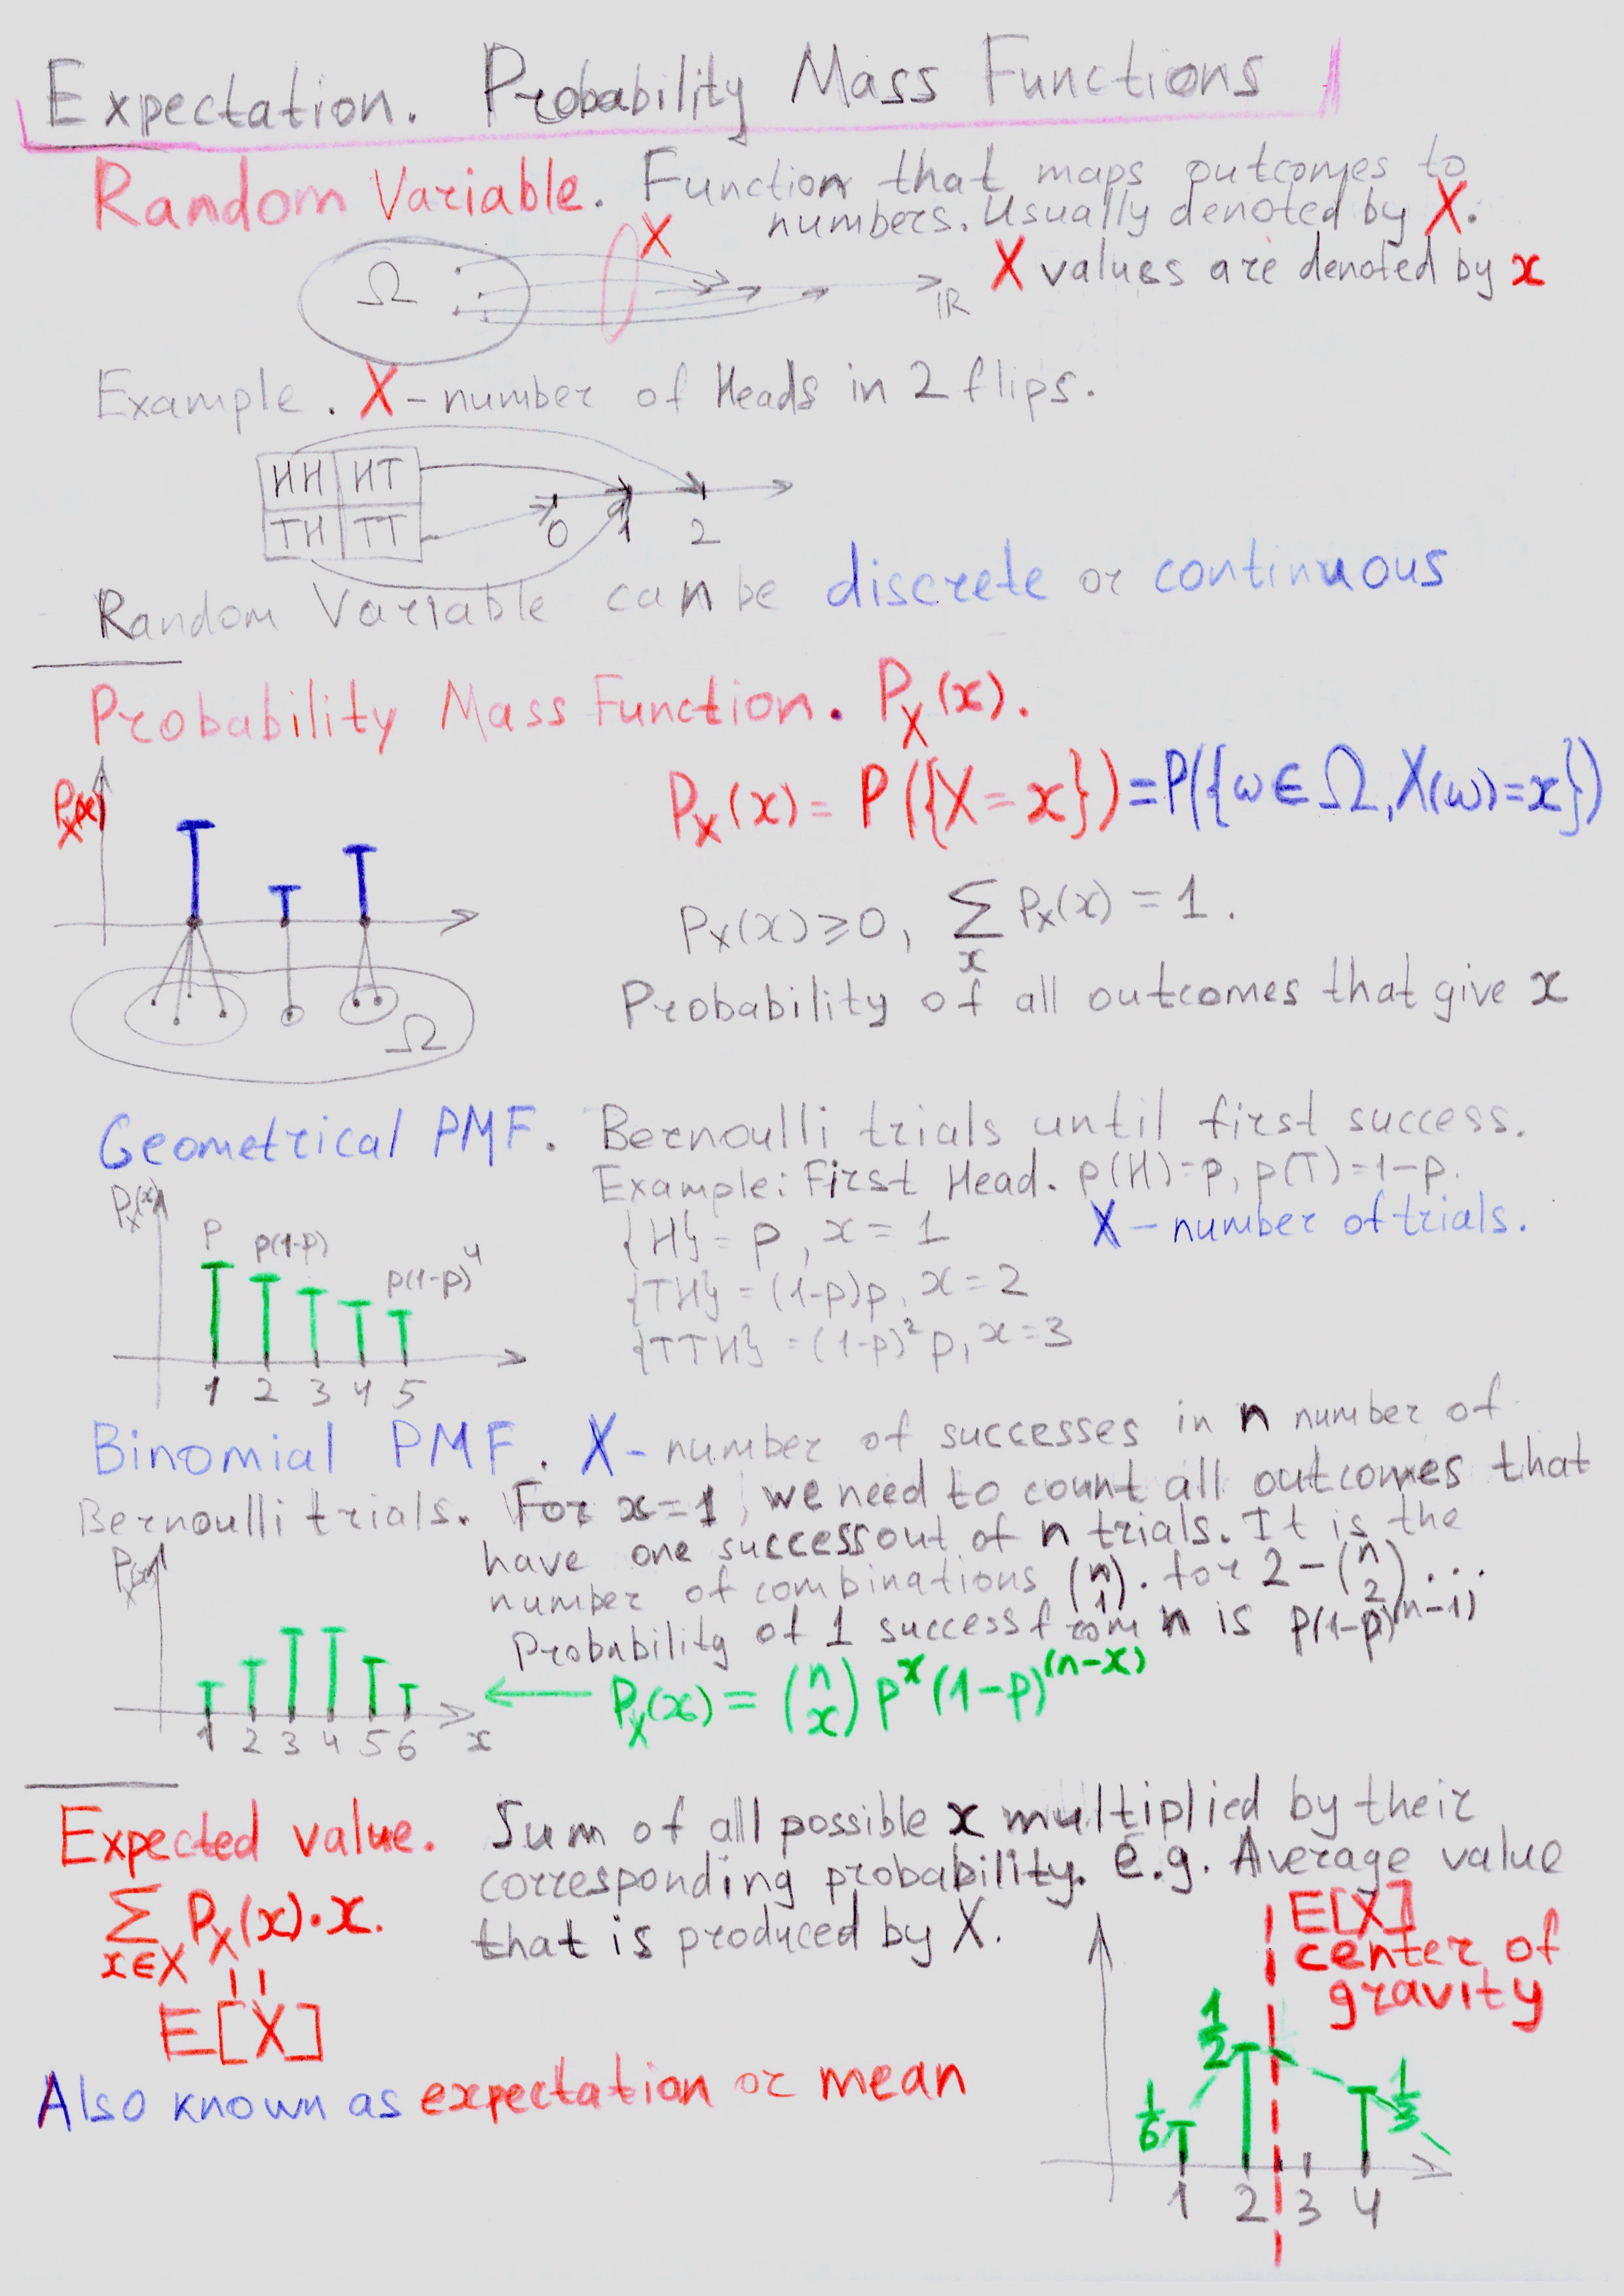 Expectation. Probability Mass Functions
Random Variable. Function that maps outcomes to
numbers. Usually denoted by X.
X
Ω
X values are denoted by x
ℝ
Example. X - number of Heads in 2 flips.
HH HT
TH TT
0 1 2
Random Variable can be discrete or continuous
Probability Mass Function. P_X(x).
P_X(x)
P_X(x) = P({X = x}) = P({ω ∈ Ω, X(ω) = x})
P_X(x) ⩾ 0, ∑_x P_X(x) = 1.
Probability of all outcomes that give x
Ω
Geometrical PMF. Bernoulli trials until first success.
Example: First Head. p(H)=p, p(T)=1-p.
P_X(x)
{H} = p, x = 1
X - number of trials.
p p(1-p) p(1-p)^4
{TH} = (1-p)p, x = 2
{TTH} = (1-p)^2 p, x = 3
1 2 3 4 5
Binomial PMF. X - number of successes in n number of
Bernoulli trials. For x = 1, we need to count all outcomes that
have one success out of n trials. It is the
number of combinations (n 1). for 2 - (n 2)...
Probability of 1 success from n is p(1-p)^(n-1)
P_X(x)
P_X(x) = (n x) p^x (1-p)^(n-x)
1 2 3 4 5 6 x
Expected value. Sum of all possible x multiplied by their
corresponding probability. e.g. Average value
that is produced by X.
∑_{x∈X} P_X(x)·x.
=
E[X]
E[X]
center of
gravity
Also known as expectation or mean
1/6 1/2 1/3
1 2 3 4